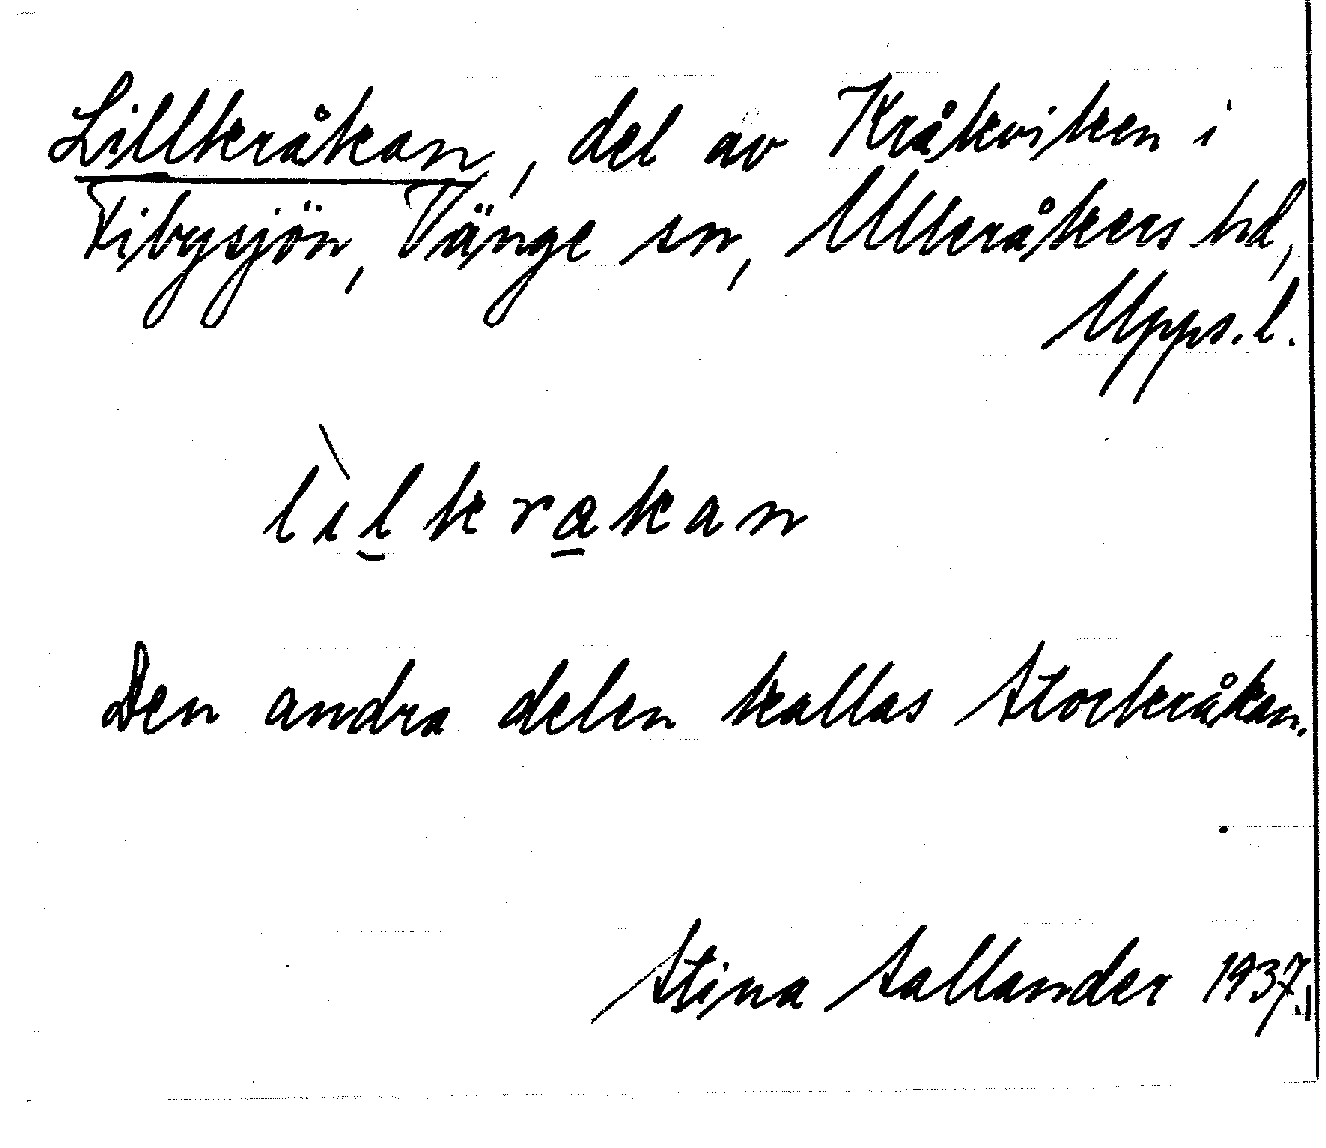 Lillkråkan, del av Kråkviken i
Fibysjön, Vänge sn, Ulleråkers hd,
Upps. l.
lìl̮kra̠kan
Den andra delen kallas Storkråkan.
Stina Sallander 1937.